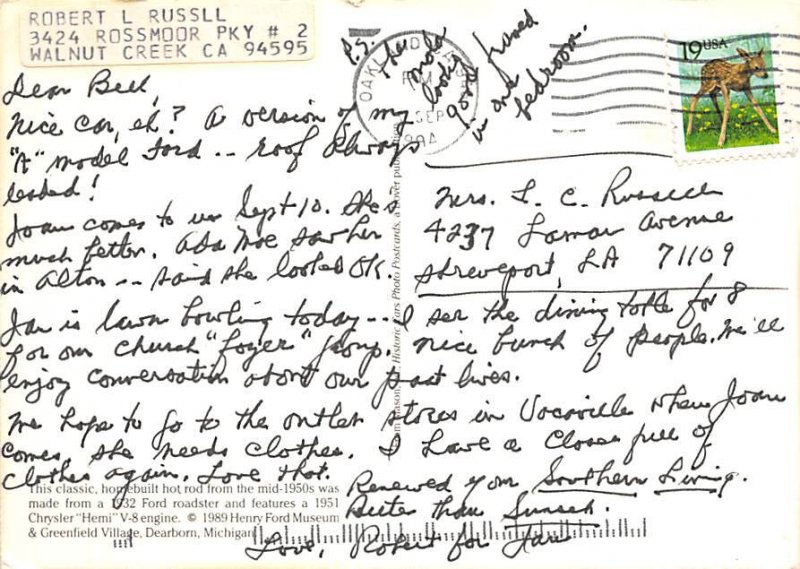 ROBERT L RUSSLL
3424 ROSSMOOR PKY # 2
WALNUT CREEK CA 94595
Dear Bell,
Nice car, eh? A version of my
"A" model Ford -- roof always
leaked!
Joan comes to us Sept 10. She's
much better. Ada Mae saw her
in Alton -- said she looked OK.
Jan is lawn bowling today -- I set the dining table for 8
for our church "foyer" group. Nice bunch of people. We'll
enjoy conversation about our past lives.
We hope to go to the outlet stores in Vacaville when Joan
comes, she needs clothes. I have a closet full of
clothes again. Love that.
Renewed your Southern Living.
Better than Sunset.
Love, Robert for Jan
P.S. The mold
body
gone
in one fused
bedroom.
OAKLAND CA
PM
SEP
1994
19USA
Mrs. L. C. Russell
4237 Lamar Avenue
Shreveport, LA 71109
Historic Cars Photo Postcards, a Dover publication
This classic, homebuilt hot rod from the mid-1950s was
made from a 1932 Ford roadster and features a 1951
Chrysler "Hemi" V-8 engine. © 1989 Henry Ford Museum
& Greenfield Village, Dearborn, Michigan